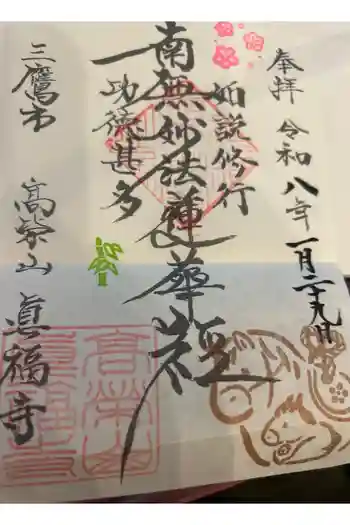 奉拝 令和八年一月二十九日
如説修行
南無妙法蓮華経
功徳甚多
三鷹市 高栄山 眞福寺
高榮山
眞福寺